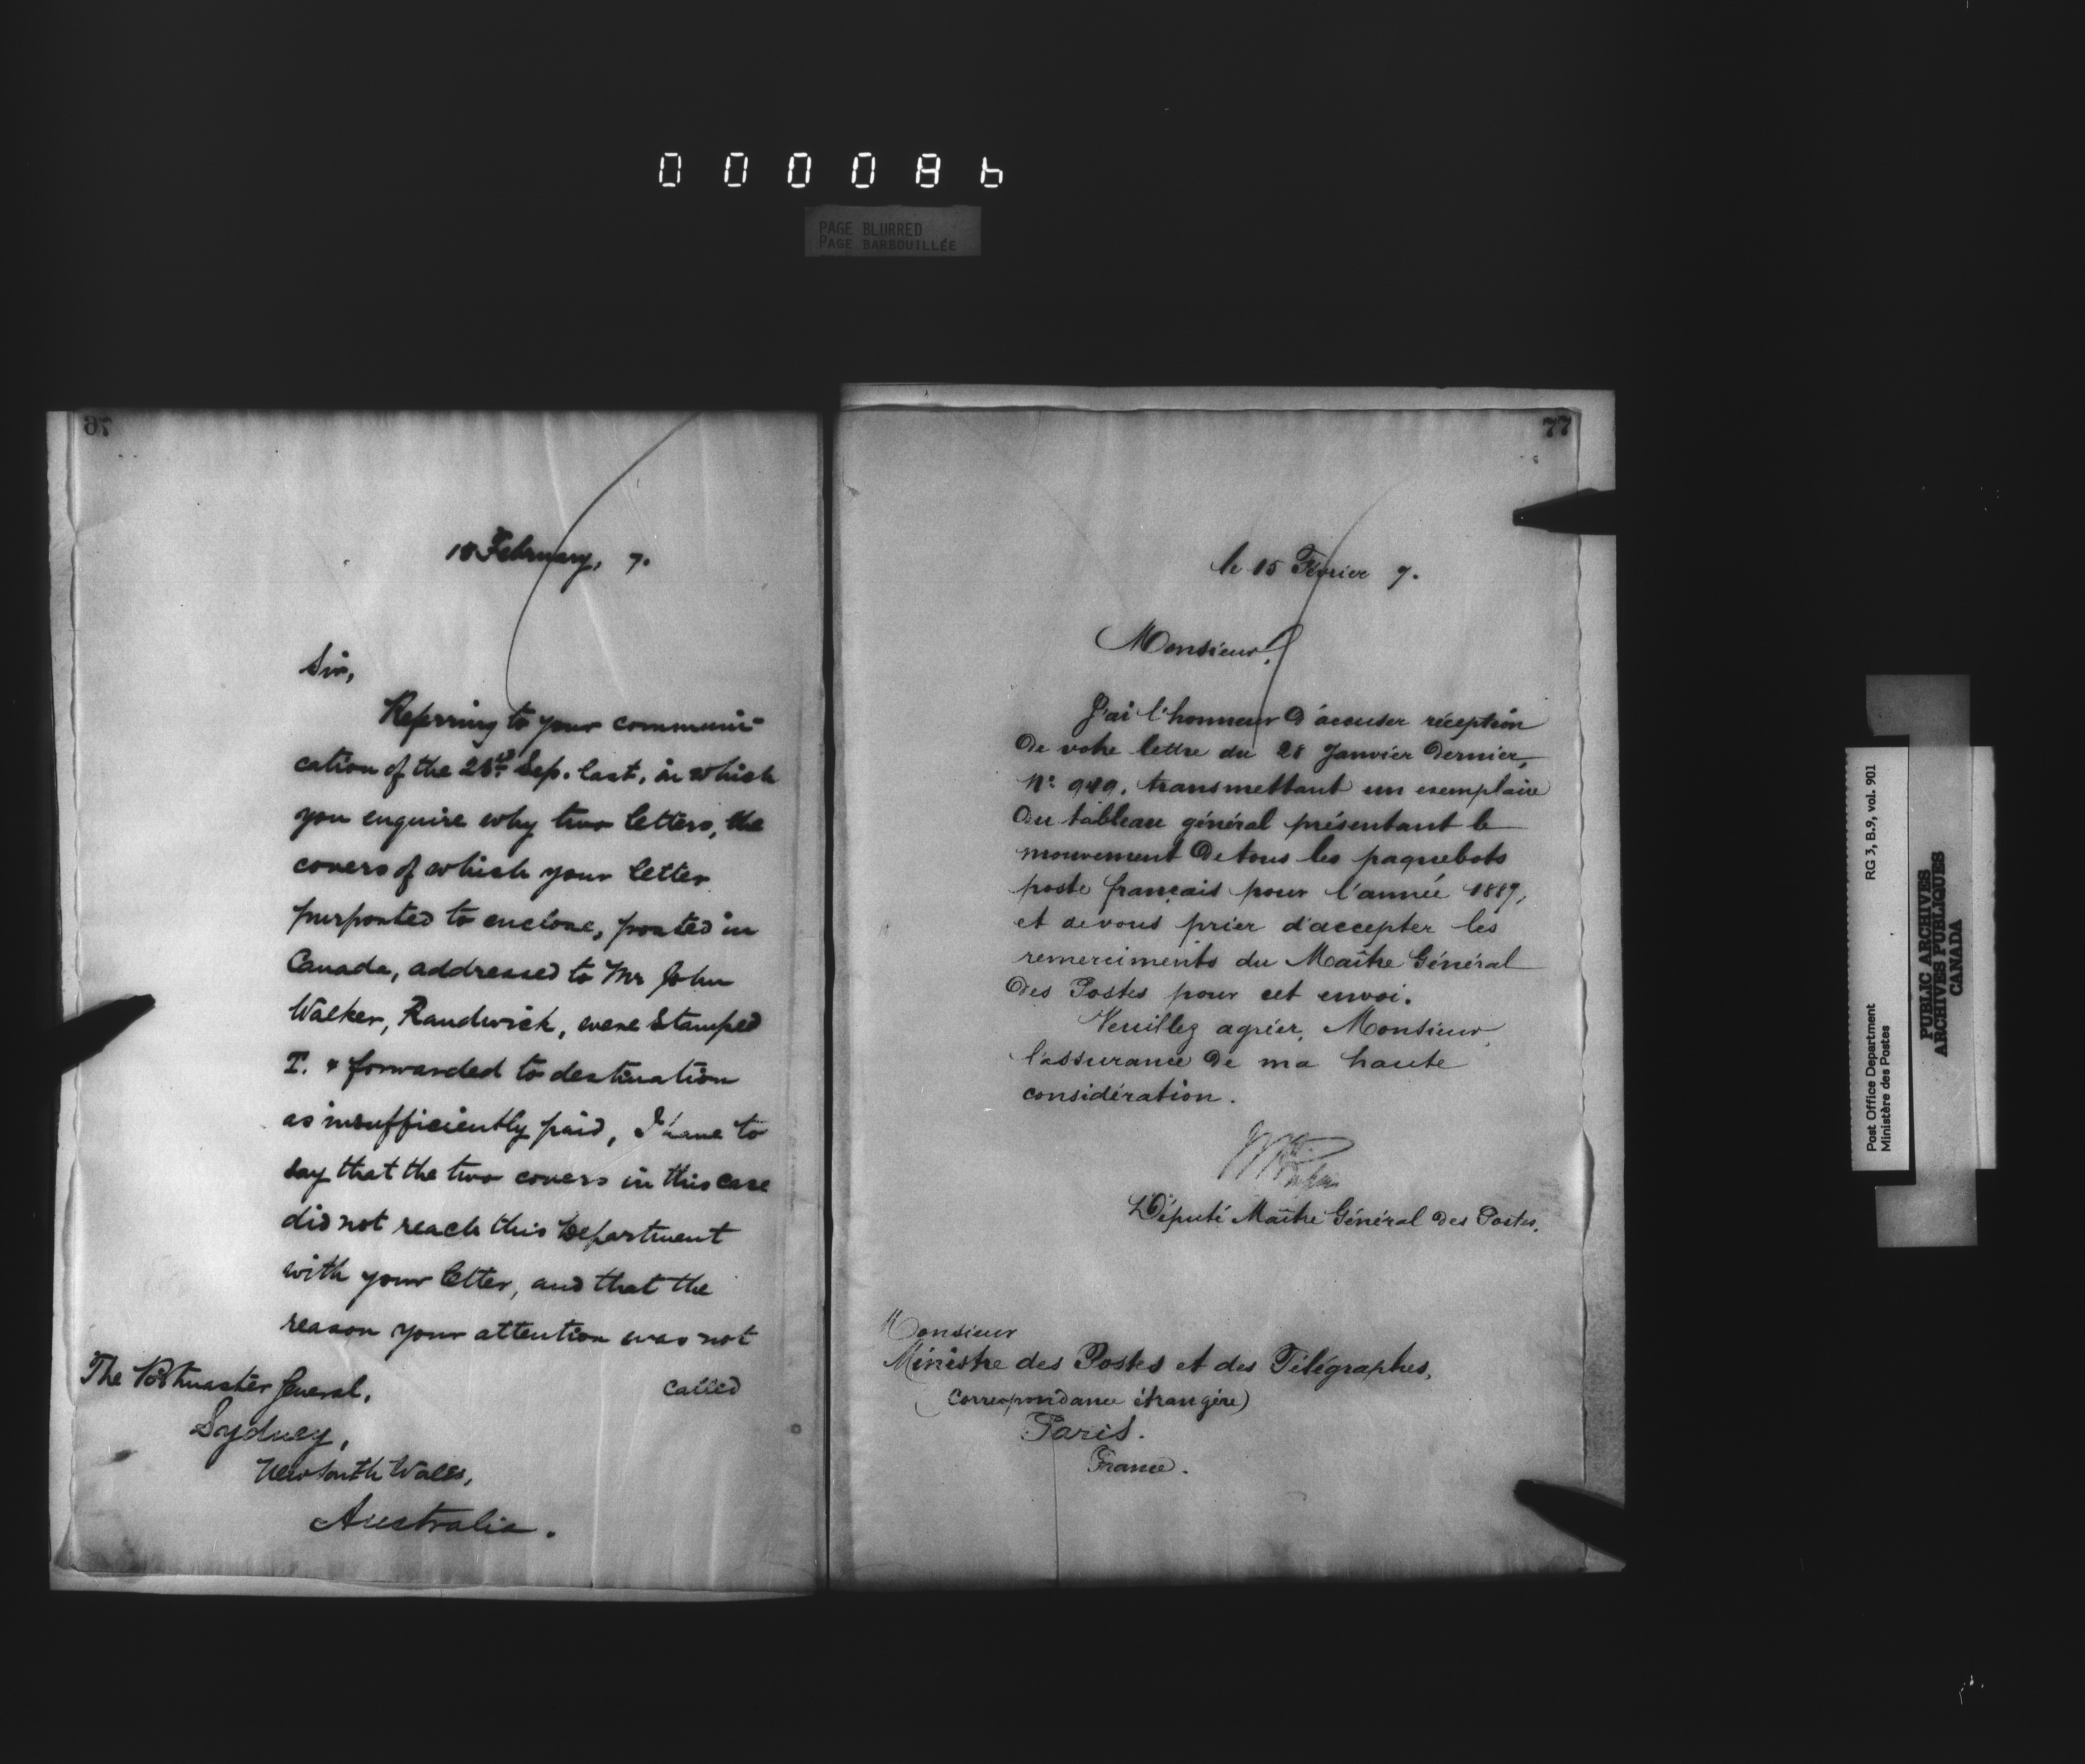 000086
PAGE BLURRED
PAGE BARBOUILLÉE
76
February, 7.
Sir,
Referring to your communi-
cation of the Sep. last, in which
you enquire why two letters, the
covers of which your letter
purported to enclose, posted in
Canada, addressed to Mr John
Walker, Randwick, were stamped
T. & forwarded to destination
as insufficiently paid, I have to
say that the two covers in this case
did not reach this Department
with your letter, and that the
reason your attention was not
called
The Postmaster General,
Sydney,
New South Wales,
Australia.
77
le 15 Février 7.
Monsieur,
J'ai l'honneur d'accuser réception
de votre lettre du 28 Janvier dernier,
No. transmettant un exemplaire
du tableau général présentant le
mouvement de tous les paquebots
poste français pour l'année 1887,
et de vous prier d'accepter les
remerciments du Maître Général
des Postes pour cet envoi.
Veuillez agréer, Monsieur,
l'assurance de ma haute
considération.
L'Député Maître Général des Postes.
Monsieur
Ministre des Postes et des Télégraphes,
(Correspondance étrangère)
Paris.
France.
Post Office Department
Ministère des Postes
RG 3, B.9, vol. 901
PUBLIC ARCHIVES
ARCHIVES PUBLIQUES
CANADA